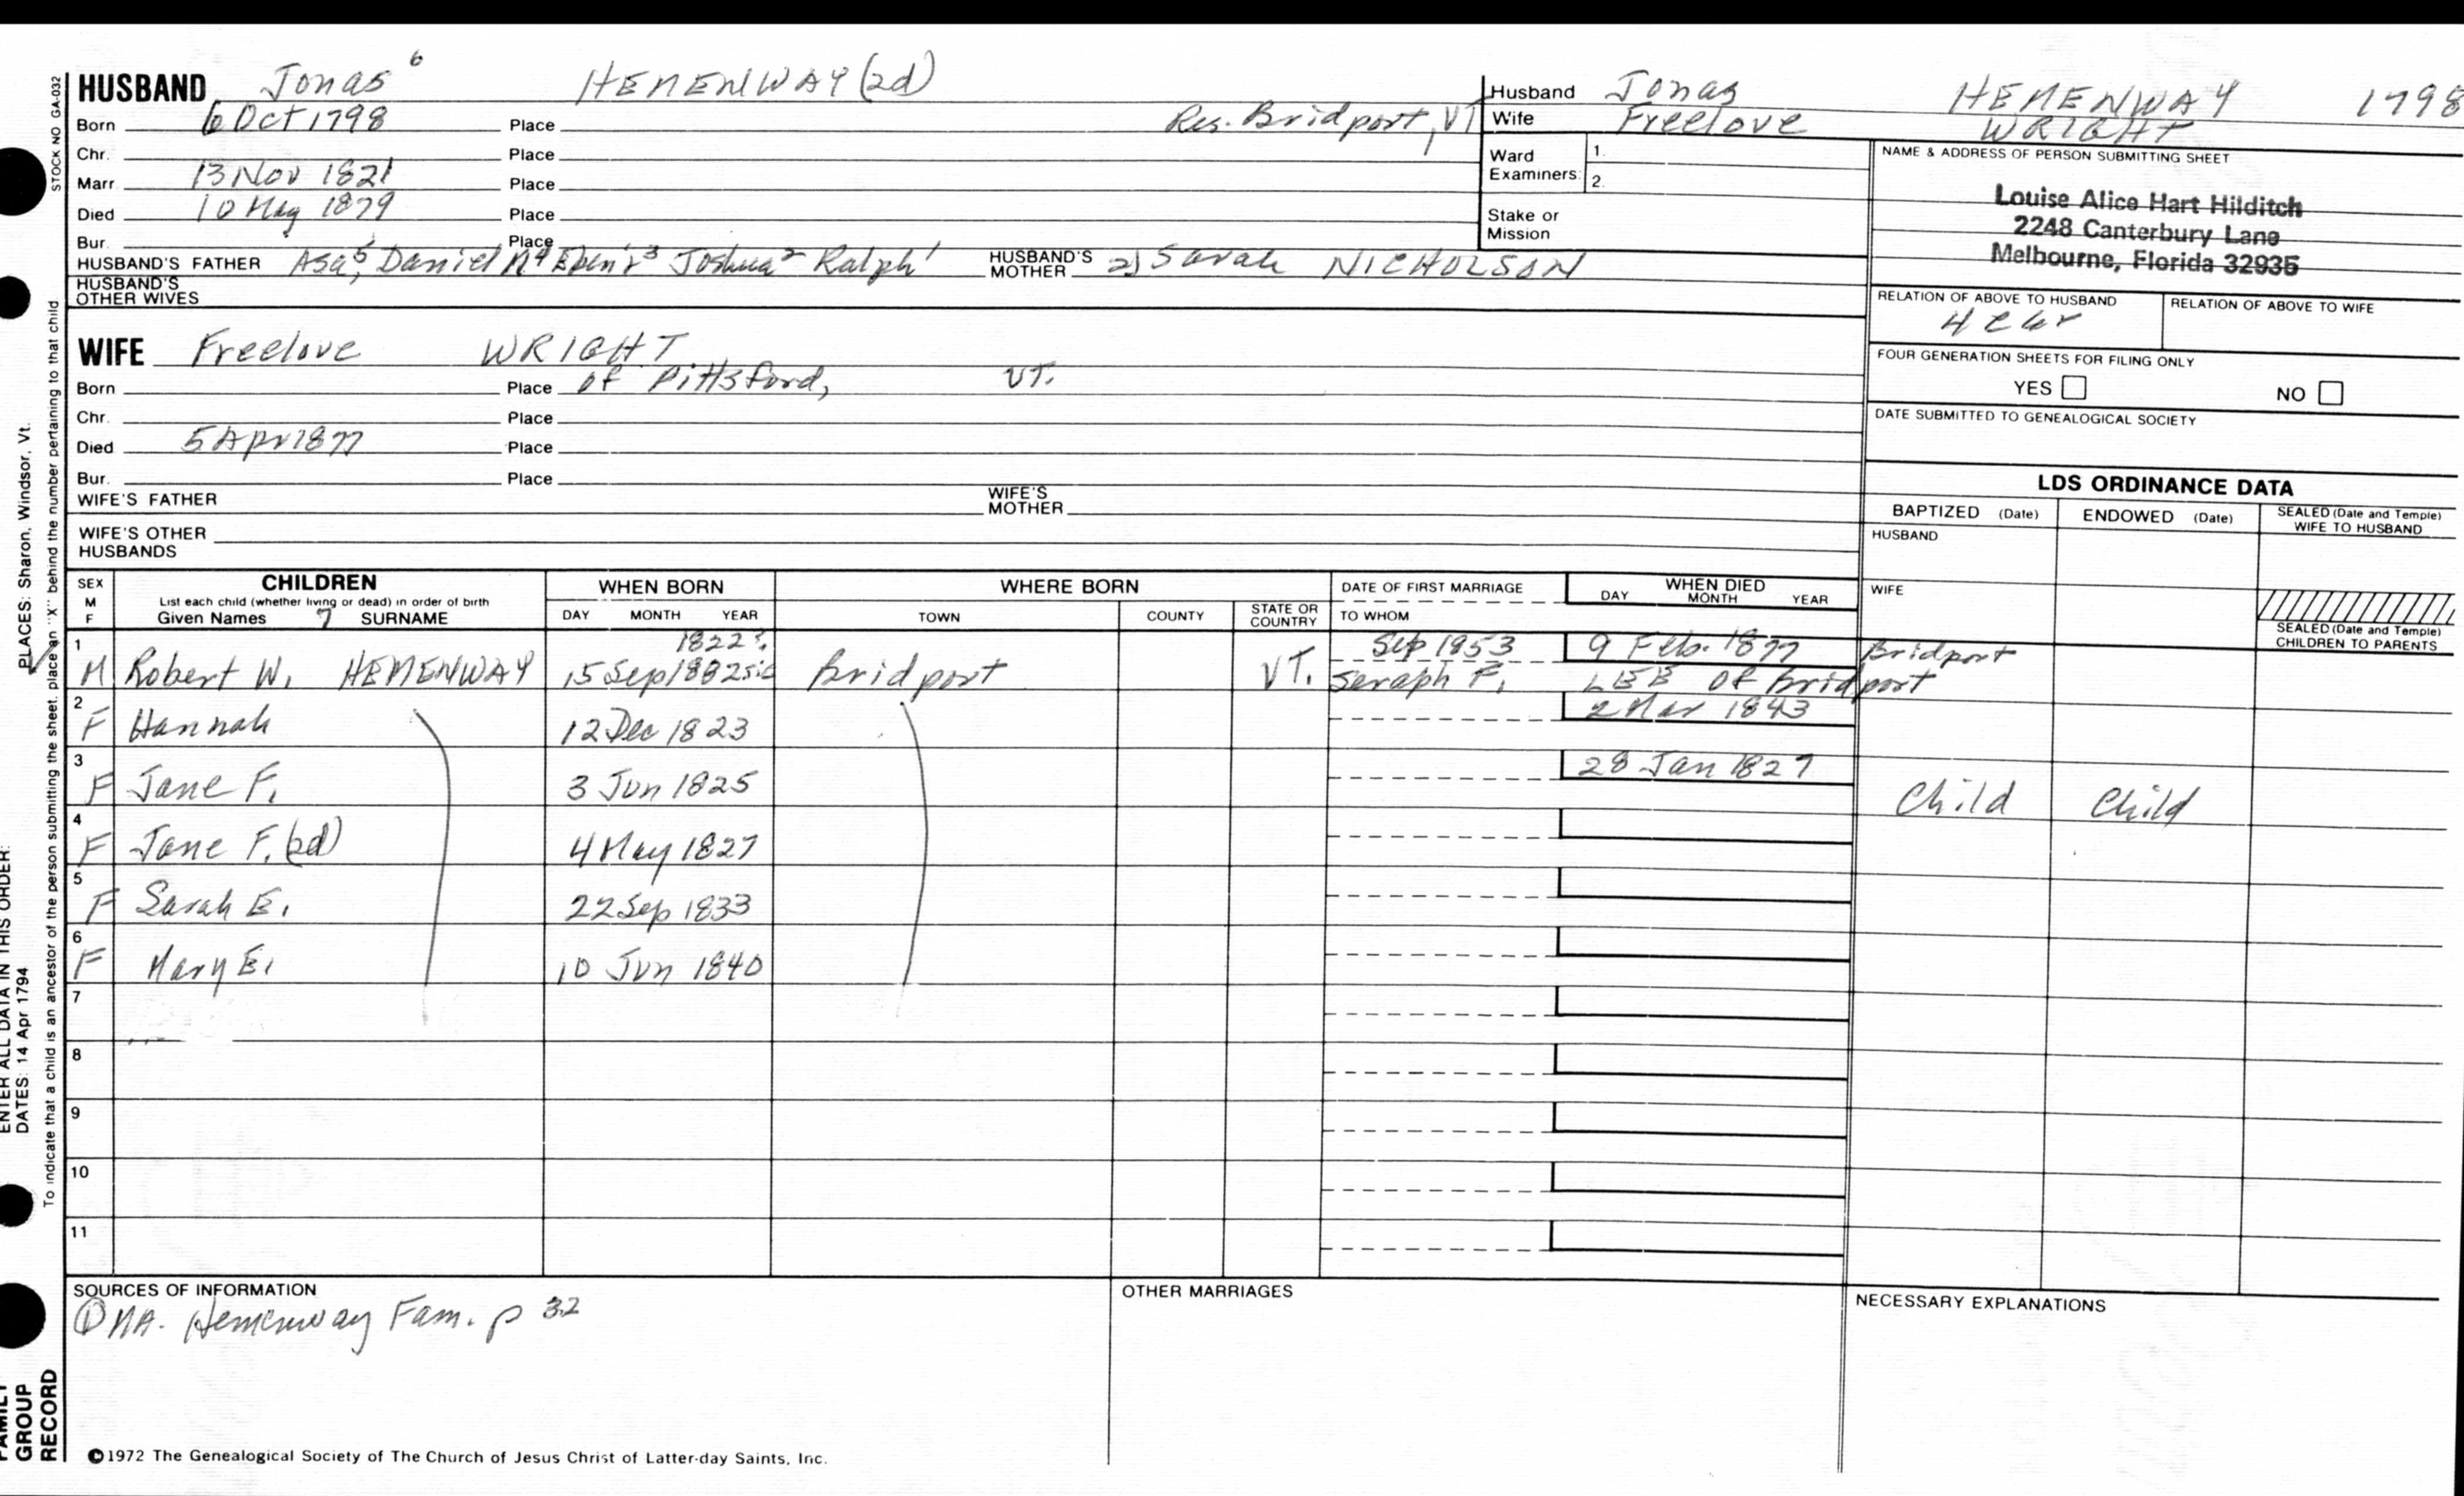 HUSBAND Jonas 6 HEMENWAY (2d)
Born 6 Oct 1798 Place Res. Bridport, VT
Chr. Place
Marr. 13 Nov 1821 Place
Died 10 May 1879 Place
Bur. Place
HUSBAND'S FATHER Asa5, Daniel M4 Eben'r3 Joshua2 Ralph1 HUSBAND'S MOTHER 2) Sarah NICHOLSON
HUSBAND'S OTHER WIVES
Husband Jonas HEMENWAY 1798
Wife Freelove WRIGHT
Ward Examiners: 1.
2.
Stake or Mission
NAME & ADDRESS OF PERSON SUBMITTING SHEET
Louise Alice Hart Hilditch
2248 Canterbury Lane
Melbourne, Florida 32935
RELATION OF ABOVE TO HUSBAND RELATION OF ABOVE TO WIFE
FOUR GENERATION SHEETS FOR FILING ONLY
YES NO
DATE SUBMITTED TO GENEALOGICAL SOCIETY
WIFE Freelove WRIGHT
Born Place of Pittsford, VT.
Chr. Place
Died 5 Apr 1877 Place
Bur. Place
WIFE'S FATHER WIFE'S MOTHER
WIFE'S OTHER HUSBANDS
LDS ORDINANCE DATA
BAPTIZED (Date) ENDOWED (Date) SEALED (Date and Temple) WIFE TO HUSBAND
HUSBAND
WIFE
SEALED (Date and Temple) CHILDREN TO PARENTS
SEX M F
CHILDREN
List each child (whether living or dead) in order of birth
Given Names 7 SURNAME
WHEN BORN
DAY MONTH YEAR
WHERE BORN
TOWN COUNTY STATE OR COUNTRY
DATE OF FIRST MARRIAGE
TO WHOM
WHEN DIED
DAY MONTH YEAR
1 1822? Sep 1853 9 Feb. 1877 Bridport
M Robert W. HEMENWAY 15 Sep 1882 sic Bridport VT. Seraph F. LEE of Bridport
2 F Hannah 12 Dec 1823 2 Mar 1843
3 F Jane F. 3 Jun 1825 28 Jan 1827 Child Child
4 F Jane F. (2d) 4 May 1827
5 F Sarah E. 22 Sep 1833
6 F Mary E. 10 Jun 1840
7
8
9
10
11
SOURCES OF INFORMATION
① NA. Hemenway Fam. p 32
OTHER MARRIAGES
NECESSARY EXPLANATIONS
©1972 The Genealogical Society of The Church of Jesus Christ of Latter-day Saints, Inc.
STOCK NO GA-032
To indicate that a child is an ancestor of the person submitting the sheet, place an "X" behind the number pertaining to that child
PLACES: Sharon, Windsor, Vt.
ENTER ALL DATA IN THIS ORDER:
DATES: 14 Apr 1794
FAMILY GROUP RECORD